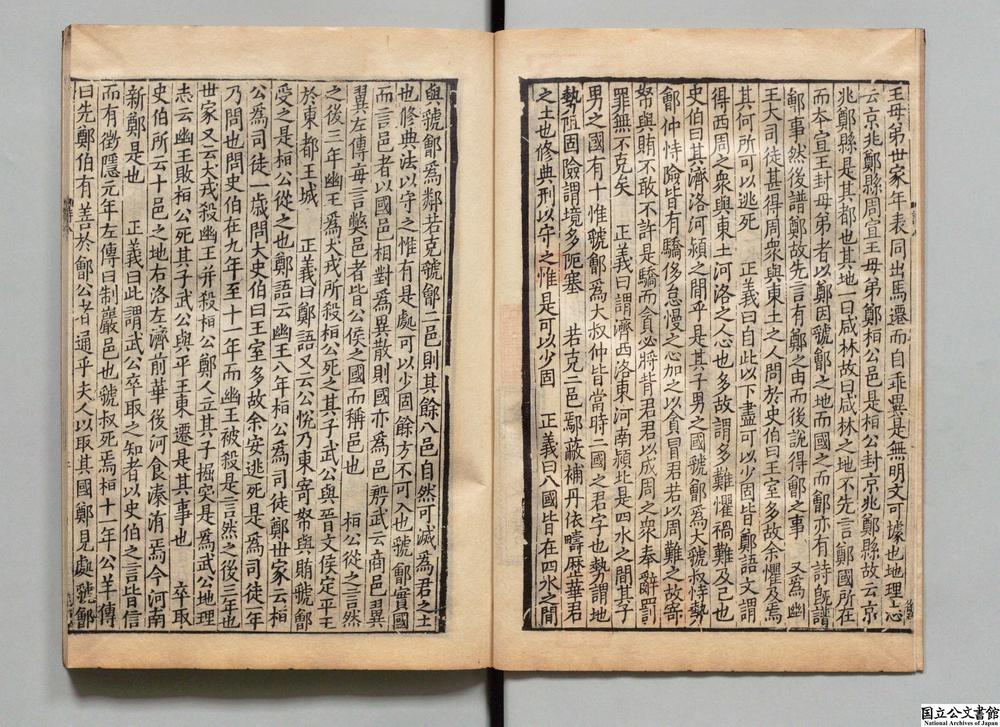 王母弟世家年表同出馬遷而自乖異是無明文可據也地理志
云京兆鄭縣周宣王母弟鄭桓公邑是桓公封京兆鄭縣故云京
兆鄭縣是其都也其地一曰咸林故曰咸林之地不先言鄭國所在
而本宣王封母弟者以鄭因虢鄶之地而國之而鄶亦有詩旣譜
鄶事然後譜鄭故先言有鄭之由而後說得鄶之事　又爲幽
王大司徒甚得周衆與東土之人問於史伯曰王室多故余懼及焉
其何所可以逃死　正義曰自此以下盡可以少固皆鄭語文謂
得西周之衆與東土河洛之人心也多故謂多難懼禍難及己也
史伯曰其濟洛河潁之間乎是其子男之國虢鄶爲大虢叔恃勢
鄶仲恃險皆有驕侈怠慢之心加之以貪冒君若以周難之故寄
帑與賄不敢不許是驕而貪必將背君君以成周之衆奉辭罰
罪無不克矣　正義曰謂濟西洛東河南潁北是四水之間其子
男之國有十惟虢鄶爲大叔仲皆當時二國之君字也勢謂地
勢阻固險謂境多阨塞　若克二邑鄢蔽補丹依疇歷華君
之土也修典刑以守之惟是可以少固　正義曰八國皆在四水之間
與虢鄶爲鄰若克虢鄶二邑則其餘八邑自然可滅爲君之土
也修典法以守之惟有是處可以少固餘方不可入也虢鄶實國
而言邑者以國邑相對爲異散則國亦爲邑殷武云商邑翼
翼左傳每言獘邑者皆公侯之國而稱邑也　桓公從之言然
之後三年幽王爲犬戎所殺桓公死之其子武公與晉文侯定平王
於東都王城　正義曰鄭語又云公悅乃東寄帑與賄虢鄶
受之是桓公從之也鄭語云幽王八年桓公爲司徒鄭世家云桓
公爲司徒一歲問大史伯曰王室多故余安逃死是爲司徒一年
乃問也問史伯在九年至十一年而幽王被殺是言然之後三年也
世家又云犬戎殺幽王并殺桓公鄭人立其子掘突是爲武公地理
志云幽王敗桓公死其子武公與平王東遷是其事也　卒取
史伯所云十邑之地右洛左濟前華後河食溱洧焉今河南
新鄭是也　正義曰此謂武公卒取之知者以史伯之言皆信
而有徵隱元年左傳曰制巖邑也虢叔死焉桓十一年公羊傳
曰先鄭伯有善於鄶公者通乎夫人以取其國鄭見處虢鄶
国立公文書館
National Archives of Japan